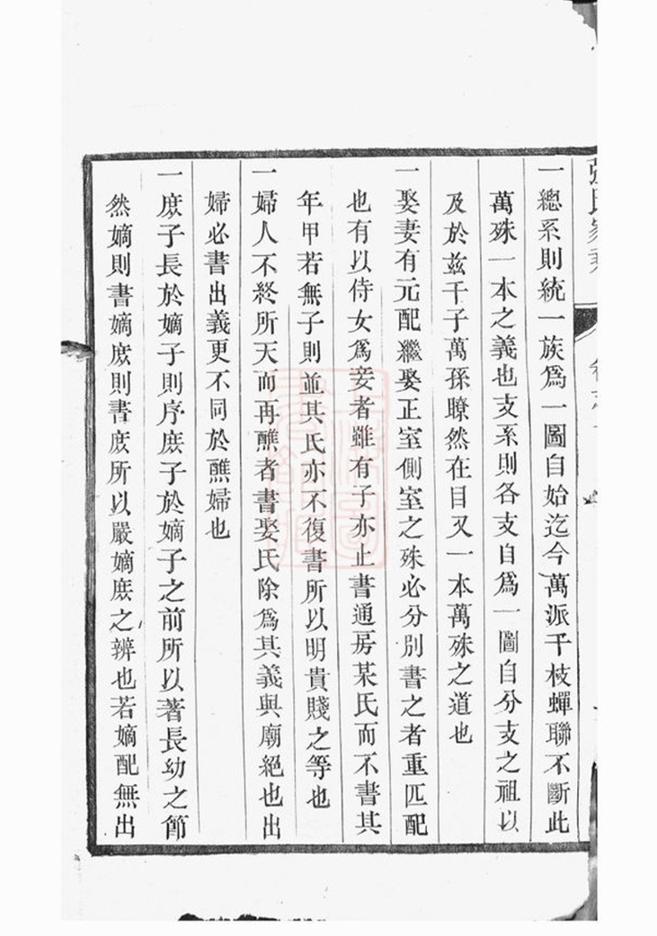 一總系則統一族爲一圖自始迄今萬派千枝蟬聯不斷此
萬殊一本之義也支系則各支自爲一圖自分支之祖以
及於兹千子萬孫瞭然在目又一本萬殊之道也
一娶妻有元配繼娶正室側室之殊必分別書之者重匹配
也有以侍女爲妾者雖有子亦止書通房某氏而不書其
年甲若無子則並其氏亦不復書所以明貴賤之等也
一婦人不終所天而再醮者書娶氏除爲其義與廟絕也出
婦必書出義更不同於醮婦也
一庶子長於嫡子則序庶子於嫡子之前所以著長幼之節
然嫡則書嫡庶則書庶所以嚴嫡庶之辨也若嫡配無出